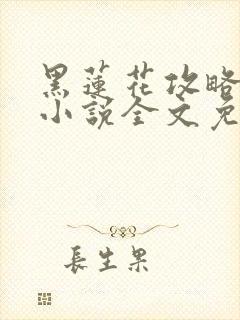 黑蓮花攻略
小說全文免
長生果